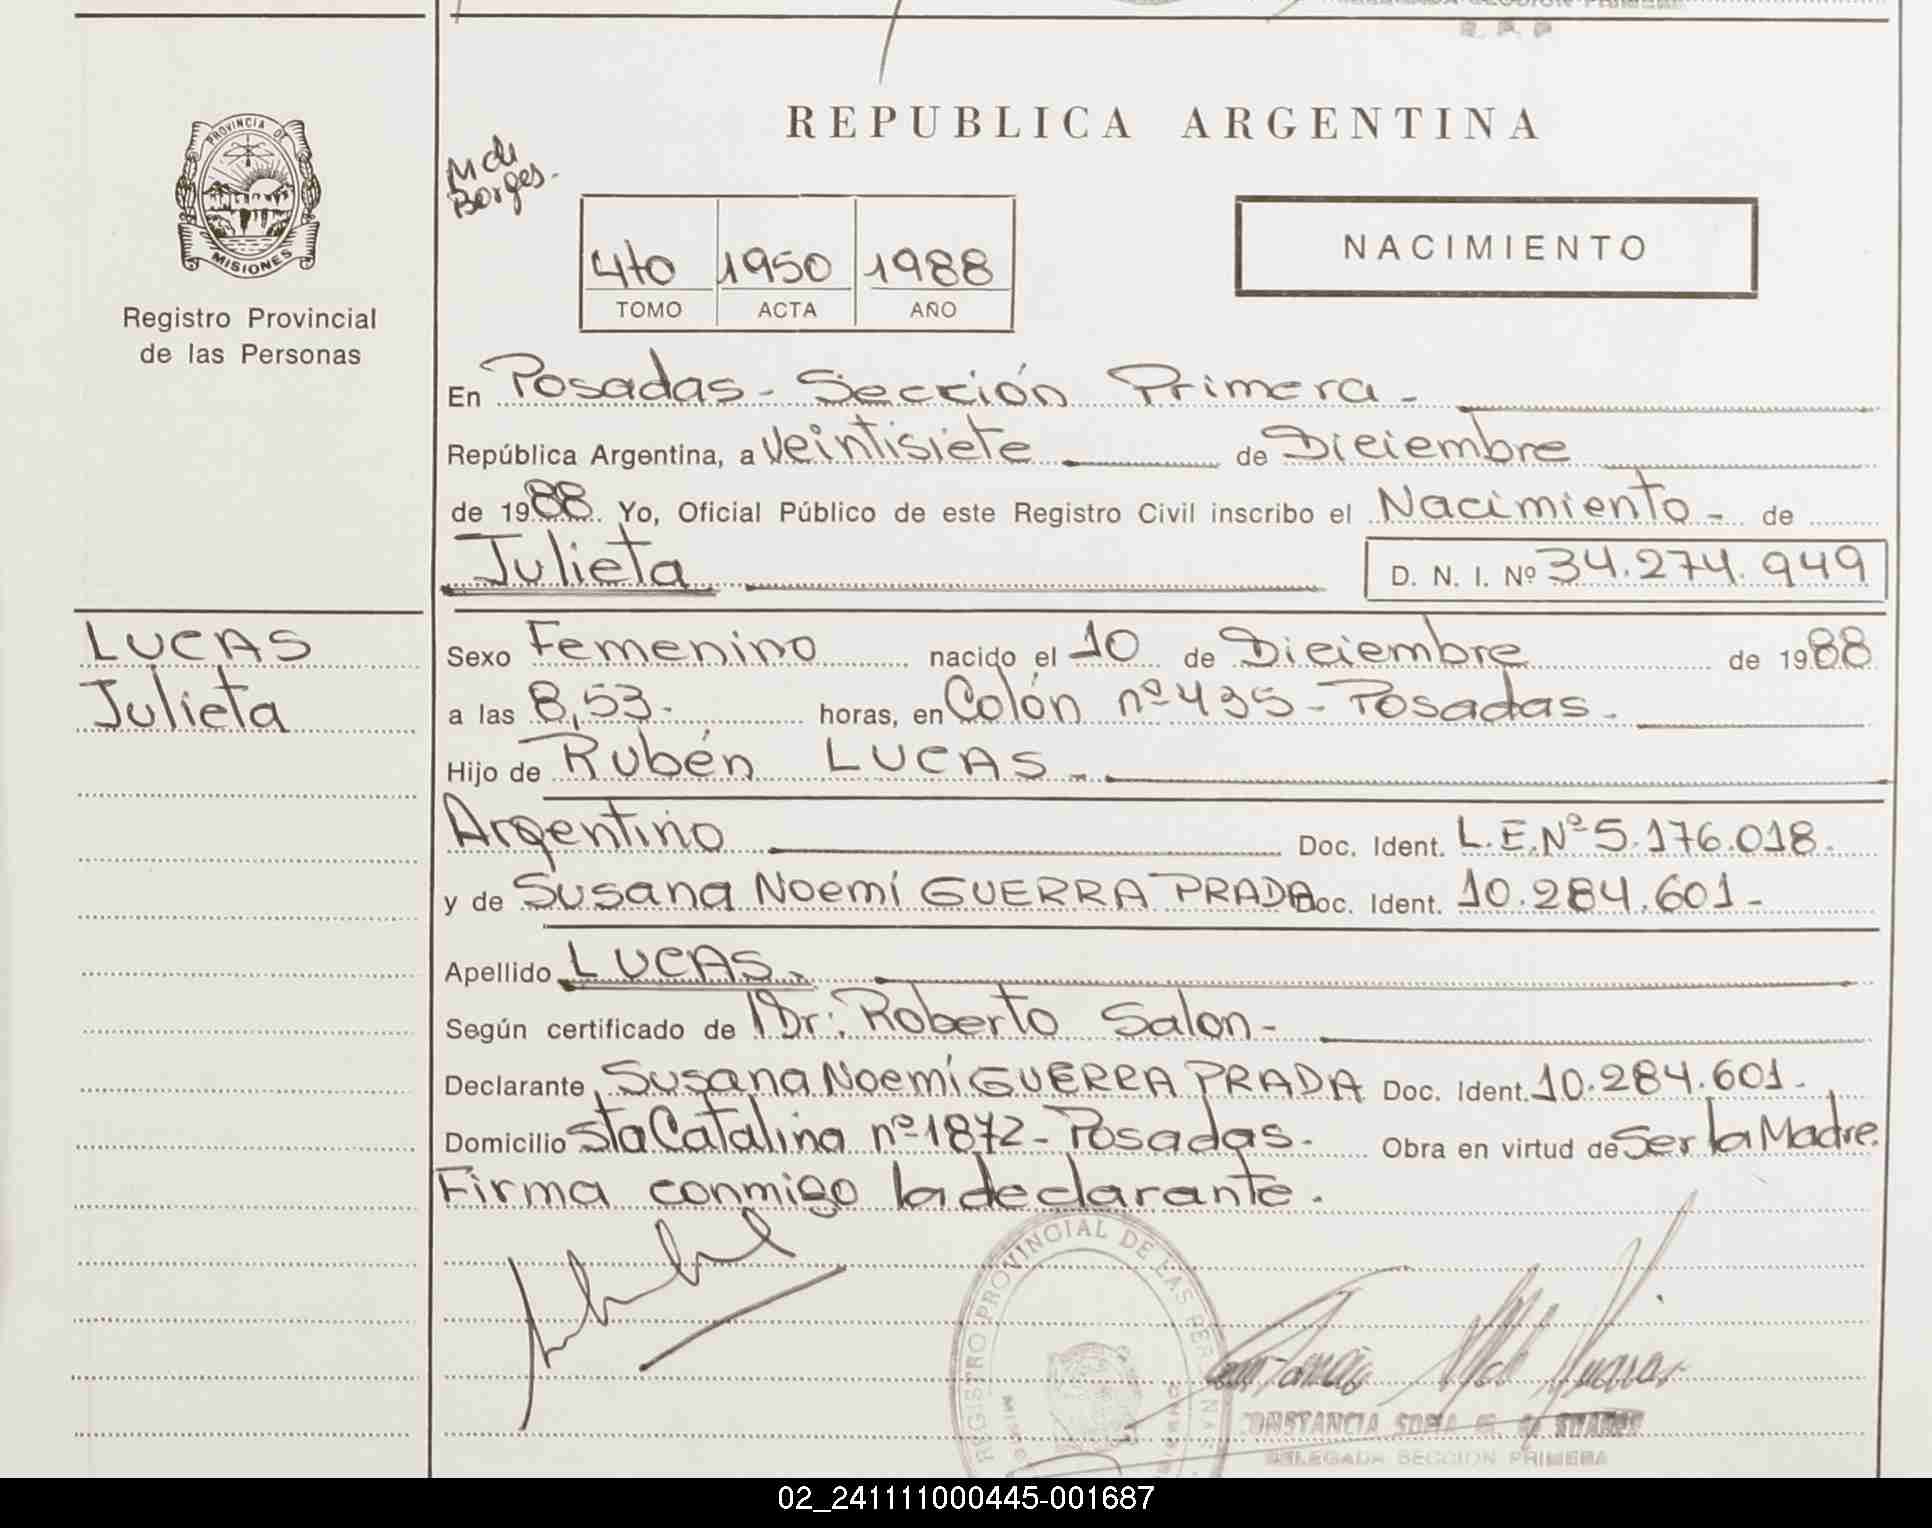 REPUBLICA ARGENTINA
PROVINCIA DE
MISIONES
Registro Provincial
de las Personas
M de
Borges.
4to 1950 1988
TOMO ACTA AÑO
NACIMIENTO
En Posadas - Sección Primera -
República Argentina, a Veintisiete de Diciembre
de 1988. Yo, Oficial Público de este Registro Civil inscribo el Nacimiento - de
Julieta D. N. I. Nº 34.274.949
LUCAS
Julieta
Sexo Femenino nacido el 10 de Diciembre de 1988
a las 8,53. horas, en Colón nº 435 - Posadas -
Hijo de Rubén LUCAS -
Argentino Doc. Ident. L.E.Nº 5.176.018.
y de Susana Noemí GUERRA PRADA Doc. Ident. 10.284.601 -
Apellido LUCAS -
Según certificado de Dr: Roberto Salon -
Declarante Susana Noemí GUERRA PRADA Doc. Ident. 10.284.601 -
Domicilio Sta Catalina nº 1872 - Posadas - Obra en virtud de Ser la Madre.
Firma conmigo la declarante.
REGISTRO PROVINCIAL DE LAS PERSONAS
CONSTANCIA
DELEGADA SECCION PRIMERA
02_241111000445-001687